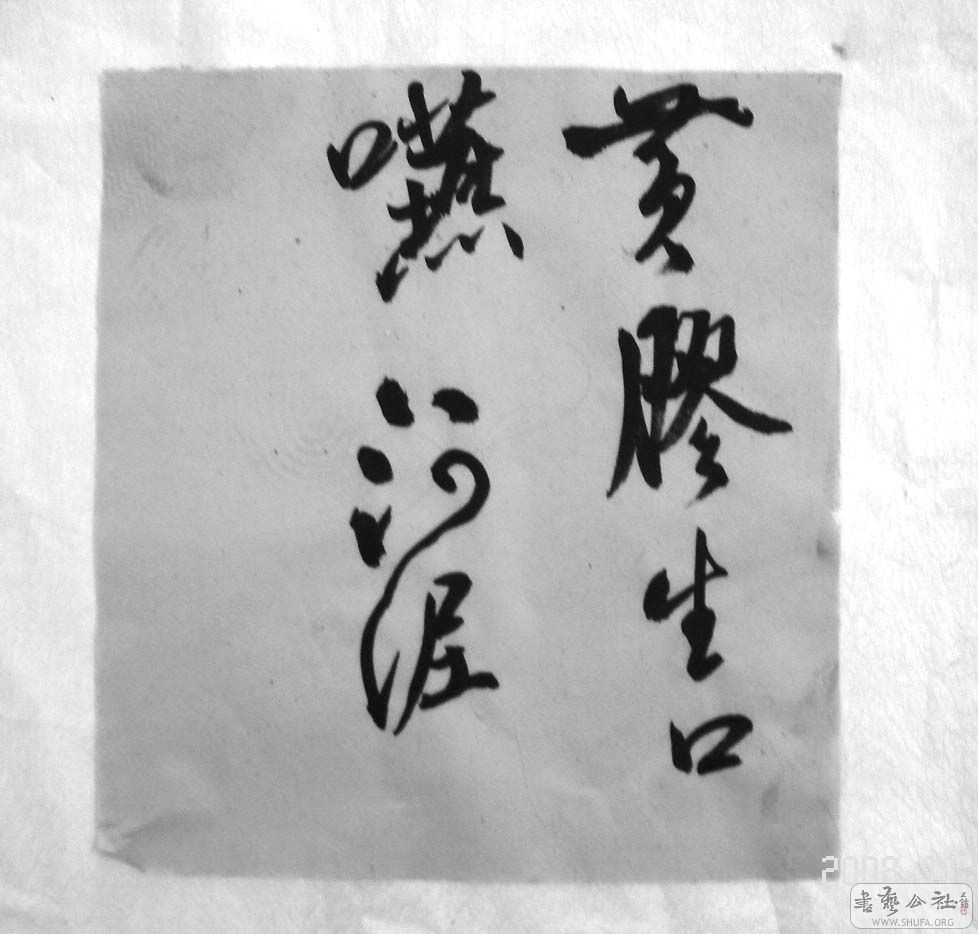 黄膠生口
嚥河涯
2008
書藝公社
WWW.SHUFA.ORG